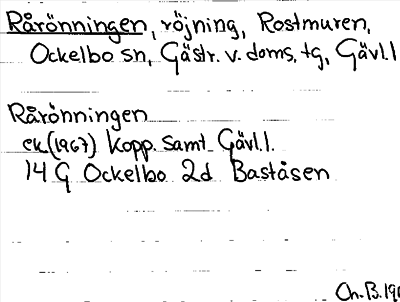 Rårönningen, röjning, Rostmuren,
Ockelbo sn, Gästr. v. doms. tg, Gävl. l
Rårönningen
ek (1967) Kopp. samt Gävl. l.
14 G Ockelbo 2d Baståsen
Ch. B. 19